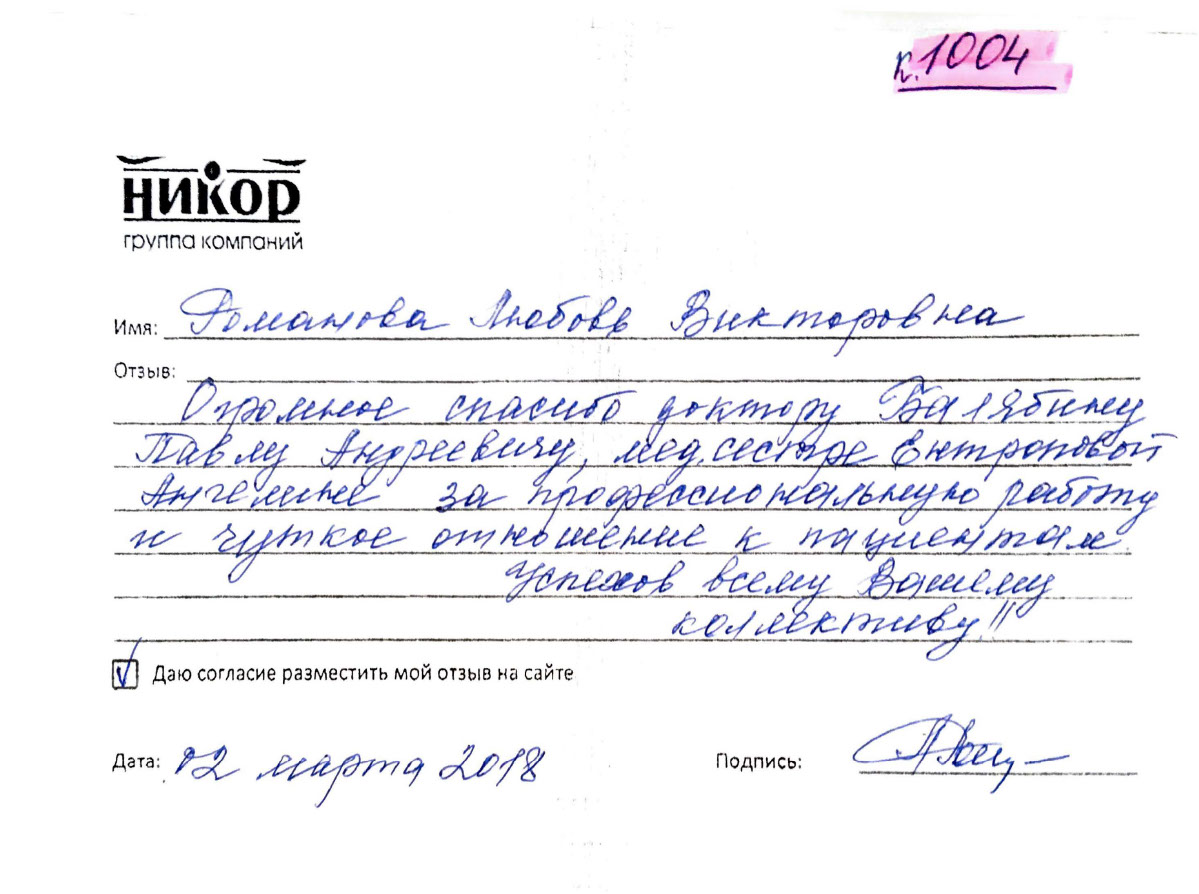 к.1004
НИКОР
группа компаний
Имя: Романова Любовь Викторовна
Отзыв:
Огромное спасибо доктору Балябину
Павлу Андреевичу, мед.сестре Ентроповой
Ангелине за профессиональную работу
и чуткое отношение к пациентам.
Успехов всему Вашему
коллективу!!
Даю согласие разместить мой отзыв на сайте
Дата: 02 марта 2018 Подпись: